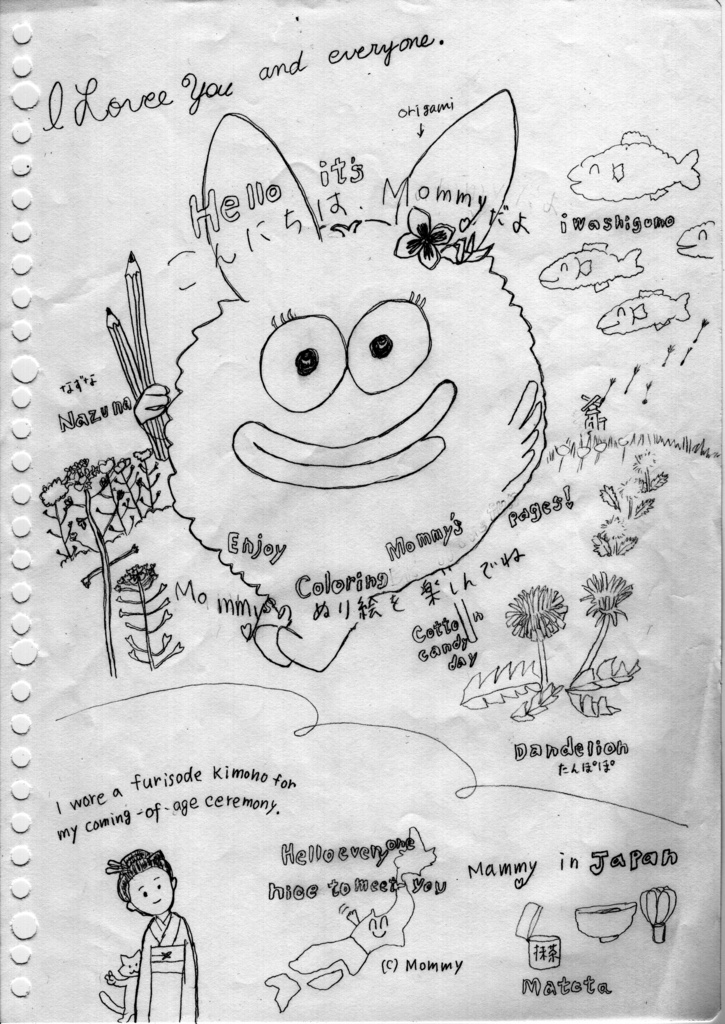 I Lovee You and everyone.
origami
Hello it's Mommy
こんにちは、 だよ
iwashigumo
なずな
Nazuna
Enjoy Mommy's pages!
Coloring
Mommy'sの ぬり絵を楽しんでね
Cotton
candy
day
Dandelion
たんぽぽ
I wore a furisode kimono for
my coming-of-age ceremony.
Hello everyone
nice to meet you
(C) Mommy
Mammy in Japan
抹茶
Matcta